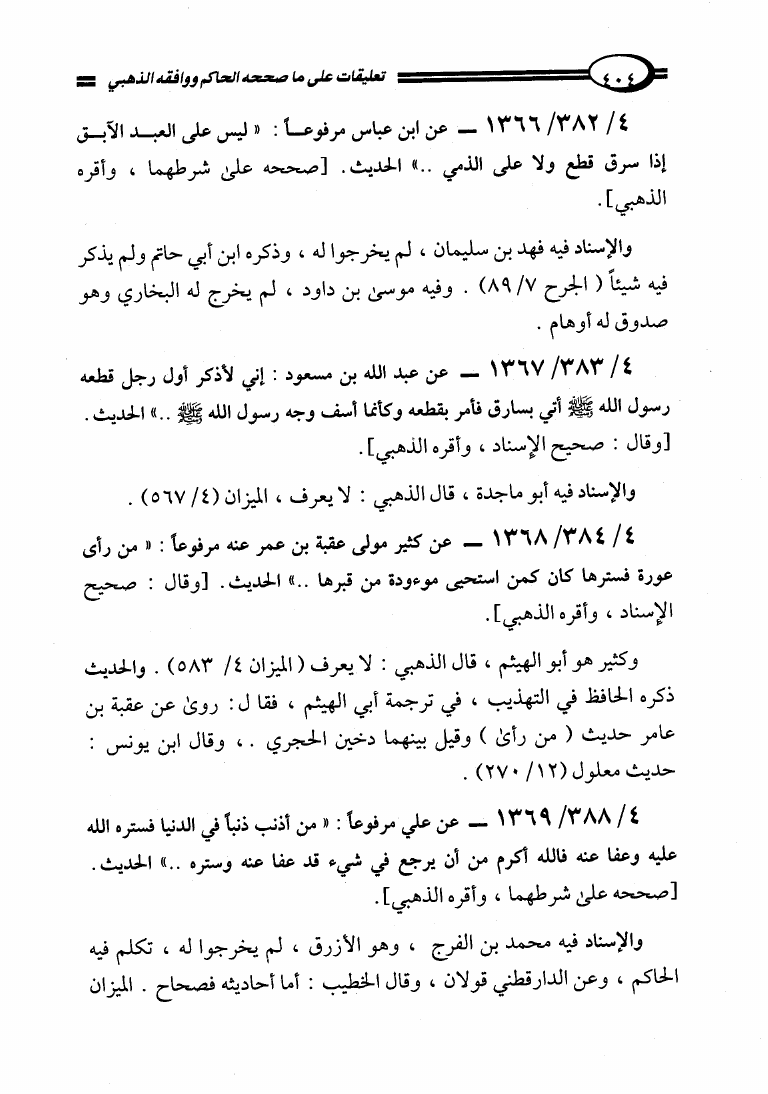 ٤٠٤ تعليقات على ما صححه الحاكم ووافقه الذهبي
١٣٦٦/٣٨٢/٤ ــ عن ابن عباس مرفوعــاً : « ليس على العبــد الآبــق
إذا سرق قطع ولا على الذمي ..» الحديث . [صححه علىٰ شرطهما ، وأقره
الذهبي] .
والإسناد فيه فهد بن سليمان ، لم يخرجوا له ، وذكره ابن أبي حاتم ولم يذكر
فيه شيئاً ( الجرح ٨٩/٧) . وفيه موسىٰ بن داود ، لم يخرج له البخاري وهو
صدوق له أوهام .
١٣٦٧/٣٨٣/٤ ــ عن عبد الله بن مسعود : إني لأذكر أول رجل قطعه
رسول الله ﷺ أتي بسارق فأمر بقطعه وكأنما أسف وجه رسول الله ﷺ ..» الحديث .
[وقال : صحيح الإسناد ، وأقره الذهبي] .
والإسناد فيه أبو ماجدة ، قال الذهبي : لا يعرف ، الميزان (٥٦٧/٤) .
١٣٦٨/٣٨٤/٤ ــ عن كثير مولى عقبة بن عمر عنه مرفوعاً : « من رأى
عورة فسترها كان كمن استحيى موءودة من قبرها ..» الحديث . [وقال : صحيح
الإسناد ، وأقره الذهبي] .
وكثير هو أبو الهيثم ، قال الذهبي : لا يعرف ( الميزان ٤/ ٥٨٣) . والحديث
ذكره الحافظ في التهذيب ، في ترجمة أبي الهيثم ، فقا ل : روىٰ عن عقبة بن
عامر حديث ( من رأىٰ ) وقيل بينهما دخين الحجري . ، وقال ابن يونس :
حديث معلول (١٢/ ٢٧٠) .
١٣٦٩/٣٨٨/٤ ــ عن علي مرفوعاً : « من أذنب ذنباً في الدنيا فستره الله
عليه وعفا عنه فالله أكرم من أن يرجع في شيء قد عفا عنه وستره ..» الحديث .
[صححه علىٰ شرطهما ، وأقره الذهبي] .
والإسناد فيه محمد بن الفرج ، وهو الأزرق ، لم يخرجوا له ، تكلم فيه
الحاكم ، وعن الدارقطني قولان ، وقال الخطيب : أما أحاديثه فصحاح . الميزان